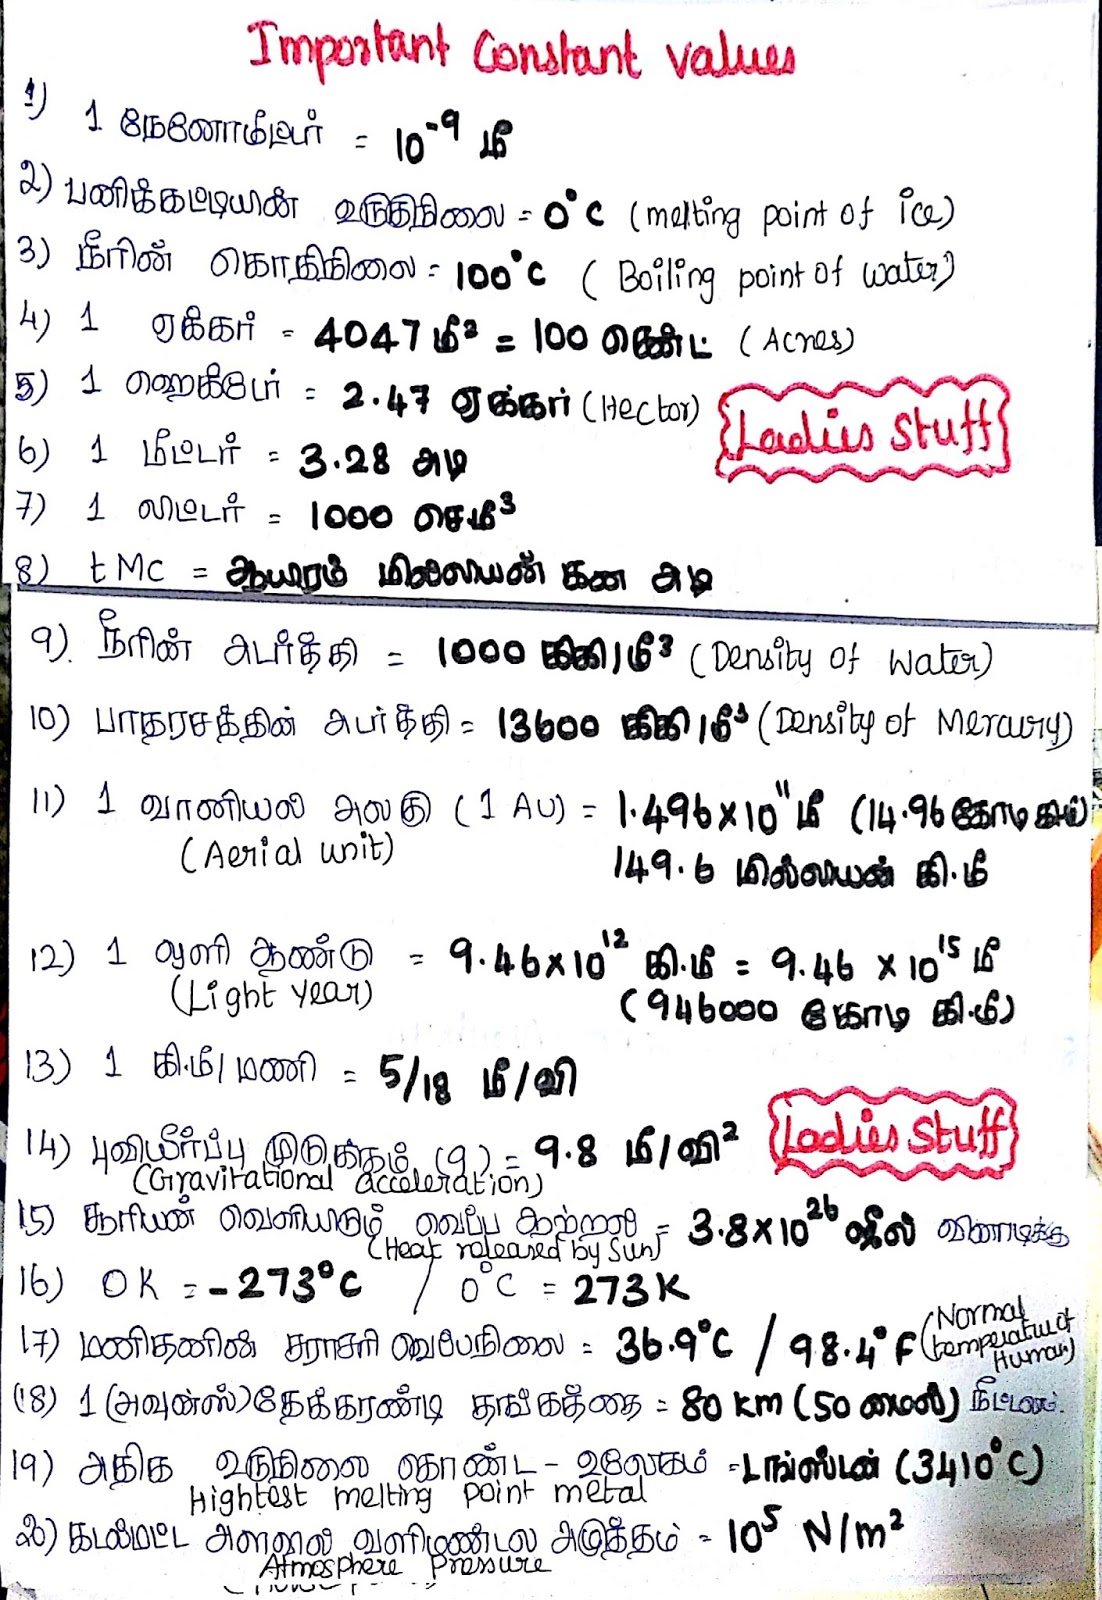 Important Constant values
1) 1 நேனோமீட்டர் = 10⁻⁹ மீ
2) பனிக்கட்டியின் உருகுநிலை = 0°C (melting point of ice)
3) நீரின் கொதிநிலை = 100°C ( Boiling point of water)
4) 1 ஏக்கர் = 4047 மீ² = 100 சென்ட் (Acres)
5) 1 ஹெக்டேர் = 2.47 ஏக்கர் (Hector)
Ladies Stuff
6) 1 மீட்டர் = 3.28 அடி
7) 1 லிட்டர் = 1000 செ.மீ³
8) tMC = ஆயிரம் மில்லியன் கன அடி
9). நீரின் அடர்த்தி = 1000 கிகி/மீ³ (Density of Water)
10) பாதரசத்தின் அடர்த்தி = 13600 கிகி/மீ³ (Density of Mercury)
11) 1 வானியல் அலகு (1 AU) = 1.496×10¹¹ மீ (14.96 கோடி
(Aerial unit) 149.6 மில்லியன் கி.மீ
12) 1 ஒளி ஆண்டு = 9.46×10¹² கி.மீ = 9.46 ×10¹⁵ மீ
(Light year) (946000 கோடி கி.மீ)
13) 1 கி.மீ/மணி = 5/18 மீ/வி
14) புவியீர்ப்பு முடுக்கம் (g) = 9.8 மீ/வி²
(Gravitational acceleration)
Ladies Stuff
15) சூரியன் வெளியிடும் வெப்ப ஆற்றல் = 3.8×10²⁶ ஜீல் வினாடிக்கு
(Heat released by Sun)
16) 0K = -273°C / 0°C = 273K
17) மனிதனின் சராசரி வெப்பநிலை = 36.9°C / 98.4°F (Normal temperatue of Human)
(18) 1 (அவுன்ஸ்) தேக்கரண்டி தங்கத்தை = 80 km (50 மைல்) நீட்டலாம்.
19) அதிக உருநிலை கொண்ட - உலோகம் = டங்ஸ்டன் (3410°C)
Hightest melting point metal
20) கடல்மட்ட அளவில் வளிமண்டல அழுத்தம் = 10⁵ N/m²
Atmosphere Pressure